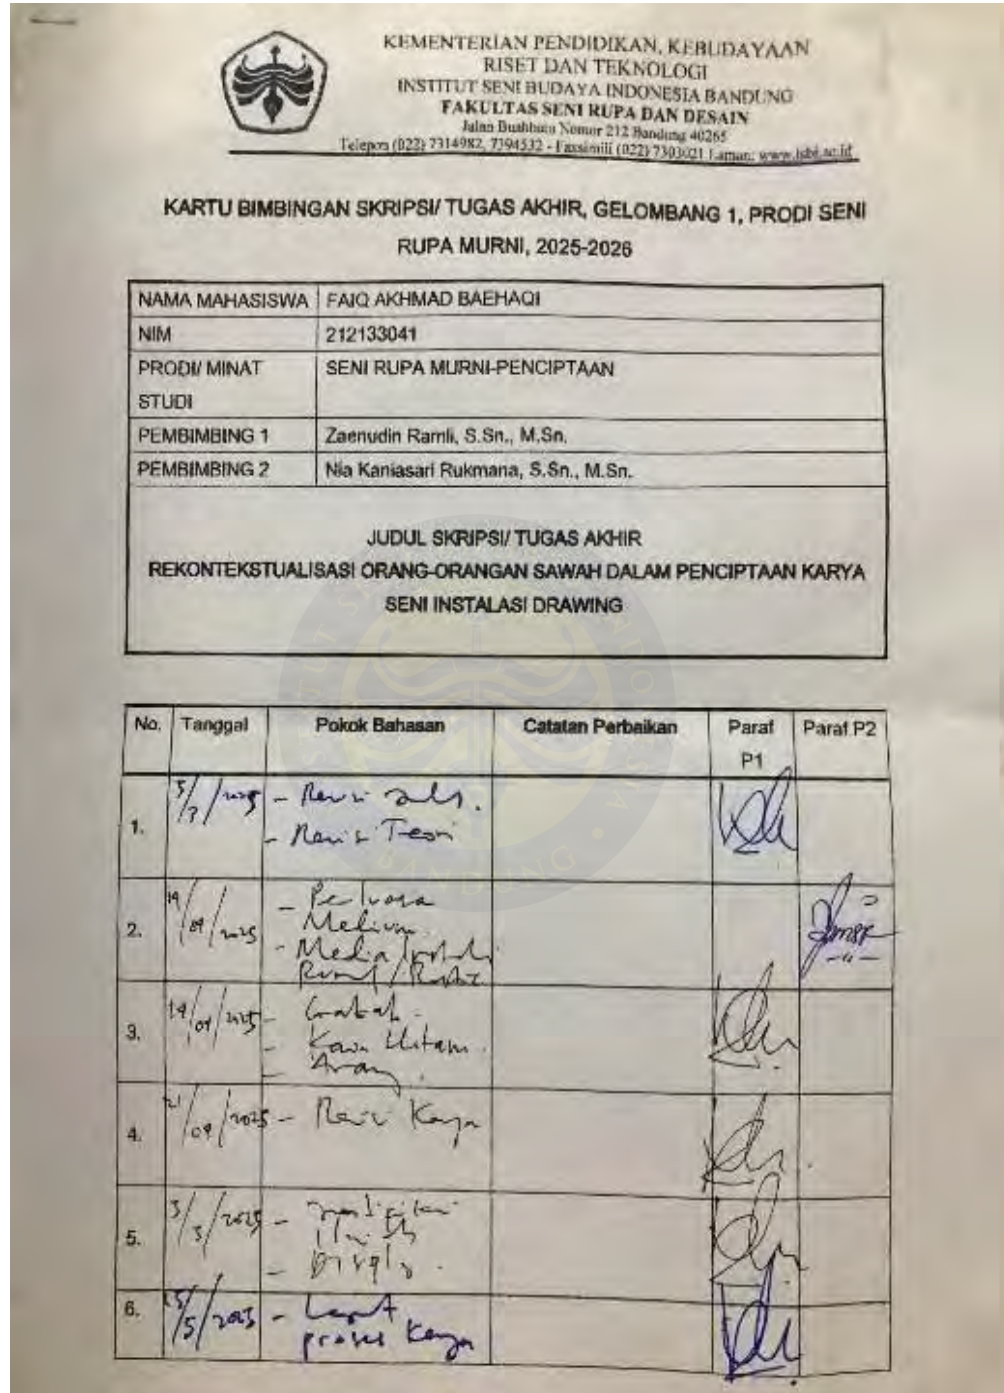 KEMENTERIAN PENDIDIKAN, KEBUDAYAAN
RISET DAN TEKNOLOGI
INSTITUT SENI BUDAYA INDONESIA BANDUNG
FAKULTAS SENI RUPA DAN DESAIN
Jalan Buahbatu Nomor 212 Bandung 40265
Telepon (022) 7314982, 7394532 - Faxsimili (022) 7303021 Laman: www.isbi.ac.id
KARTU BIMBINGAN SKRIPSI/ TUGAS AKHIR, GELOMBANG 1, PRODI SENI
RUPA MURNI, 2025-2026
NAMA MAHASISWA FAIQ AKHMAD BAEHAQI
NIM 212133041
PRODI/ MINAT STUDI SENI RUPA MURNI-PENCIPTAAN
PEMBIMBING 1 Zaenudin Ramli, S.Sn., M.Sn.
PEMBIMBING 2 Nia Kaniasari Rukmana, S.Sn., M.Sn.
JUDUL SKRIPSI/ TUGAS AKHIR
REKONTEKSTUALISASI ORANG-ORANGAN SAWAH DALAM PENCIPTAAN KARYA
SENI INSTALASI DRAWING
No. Tanggal Pokok Bahasan Catatan Perbaikan Paraf P1 Paraf P2
1. - Revisi
- Revisi Teori
2. 19/09/2025 -
Medium
- Media
3. 19/09/2025 -
- Kawa Hitam
- Arang
4. 21/09/2025 - Revisi Karya
5. 3/5/2025 -
- Display
6. 15/5/2025 - Lanjut
proses Karya